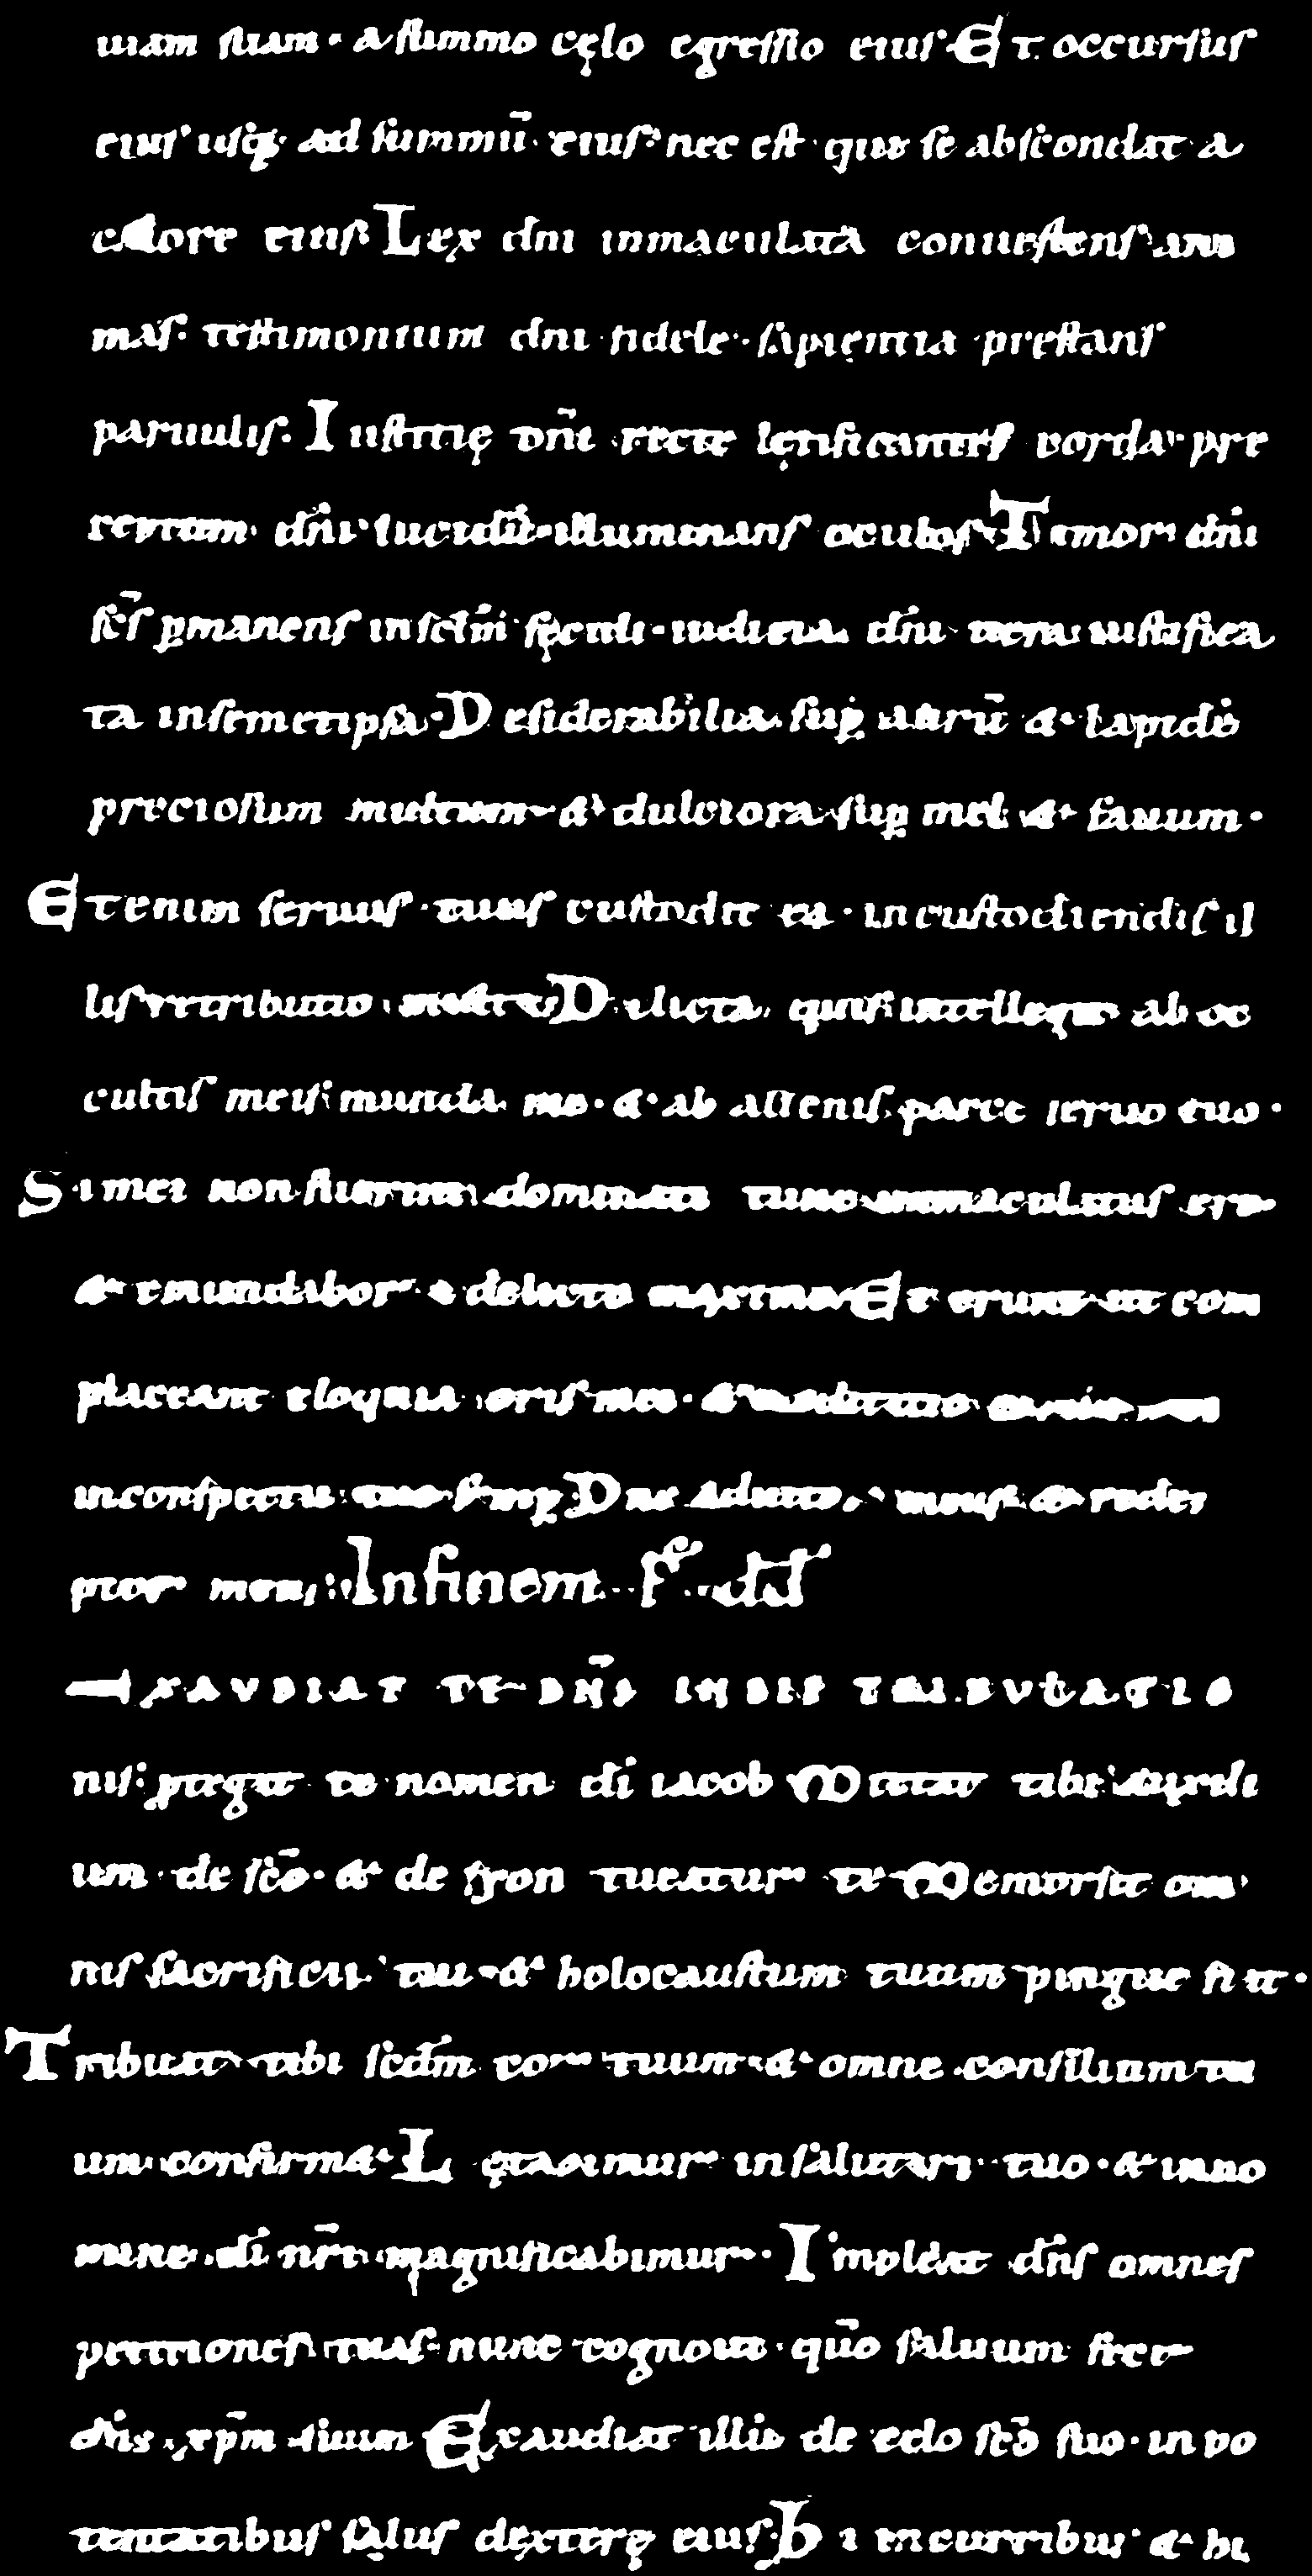 uiam suam · a summo cęlo egressio eius · Et occursus
eius usq; ad summū · eius · nec est · qui se abscondat · a
calore eius Lex dni inmaculata conuertens ani
mas · testimonium dni fidele · sapientia prestans
paruulis · Iustitię dn̄i recte lętificantes corda · pre
ceptum dn̄i lucidū · illuminans oculos · Timor dn̄i
sc̄s pmanens in sclm̄ scdi · iudicia dn̄i uera iustifica
ta insemetipsa · Desiderabilia sup aurū & lapidē
preciosum multum & dulciora sup mel & fauum ·
Etenim seruus tuus custodit ea · in custodiendis il
lis retributio multa Delicta quis intellegit ab oc
cultis meis munda me · & ab alienis parce seruo tuo ·
Si mei non fuerint dominati tunc inmaculatus ero
& emundabor a delicto maximo Et erunt ut com
placeant eloquia oris mei · & meditatio
in conspectu tuo semp Dne adiutor meus & rede
ptor meus · In finem ps dd
EXAUDIAT TE DN̄S IN DIE TRIBULATIO
nis · protegat te nomen di iacob Mittat tibi auxili
um de sc̄o · & de syon tueatur te Memor sit om
nis sacrificii tui · & holocaustum tuum pingue fiat ·
Tribuat tibi scdm cor tuum · & omne consilium tu
um confirm& Lętabimur in salutari tuo · & in no
mine di nr̄i magnificabimur · Impleat dn̄s omnes
petitiones tuas · nunc cognoui · qūo saluum fecit
dn̄s xp̄m suum Exaudiat illū de celo sc̄o suo · in po
tentatibus salus dexterę eius · hi in curribus & hi